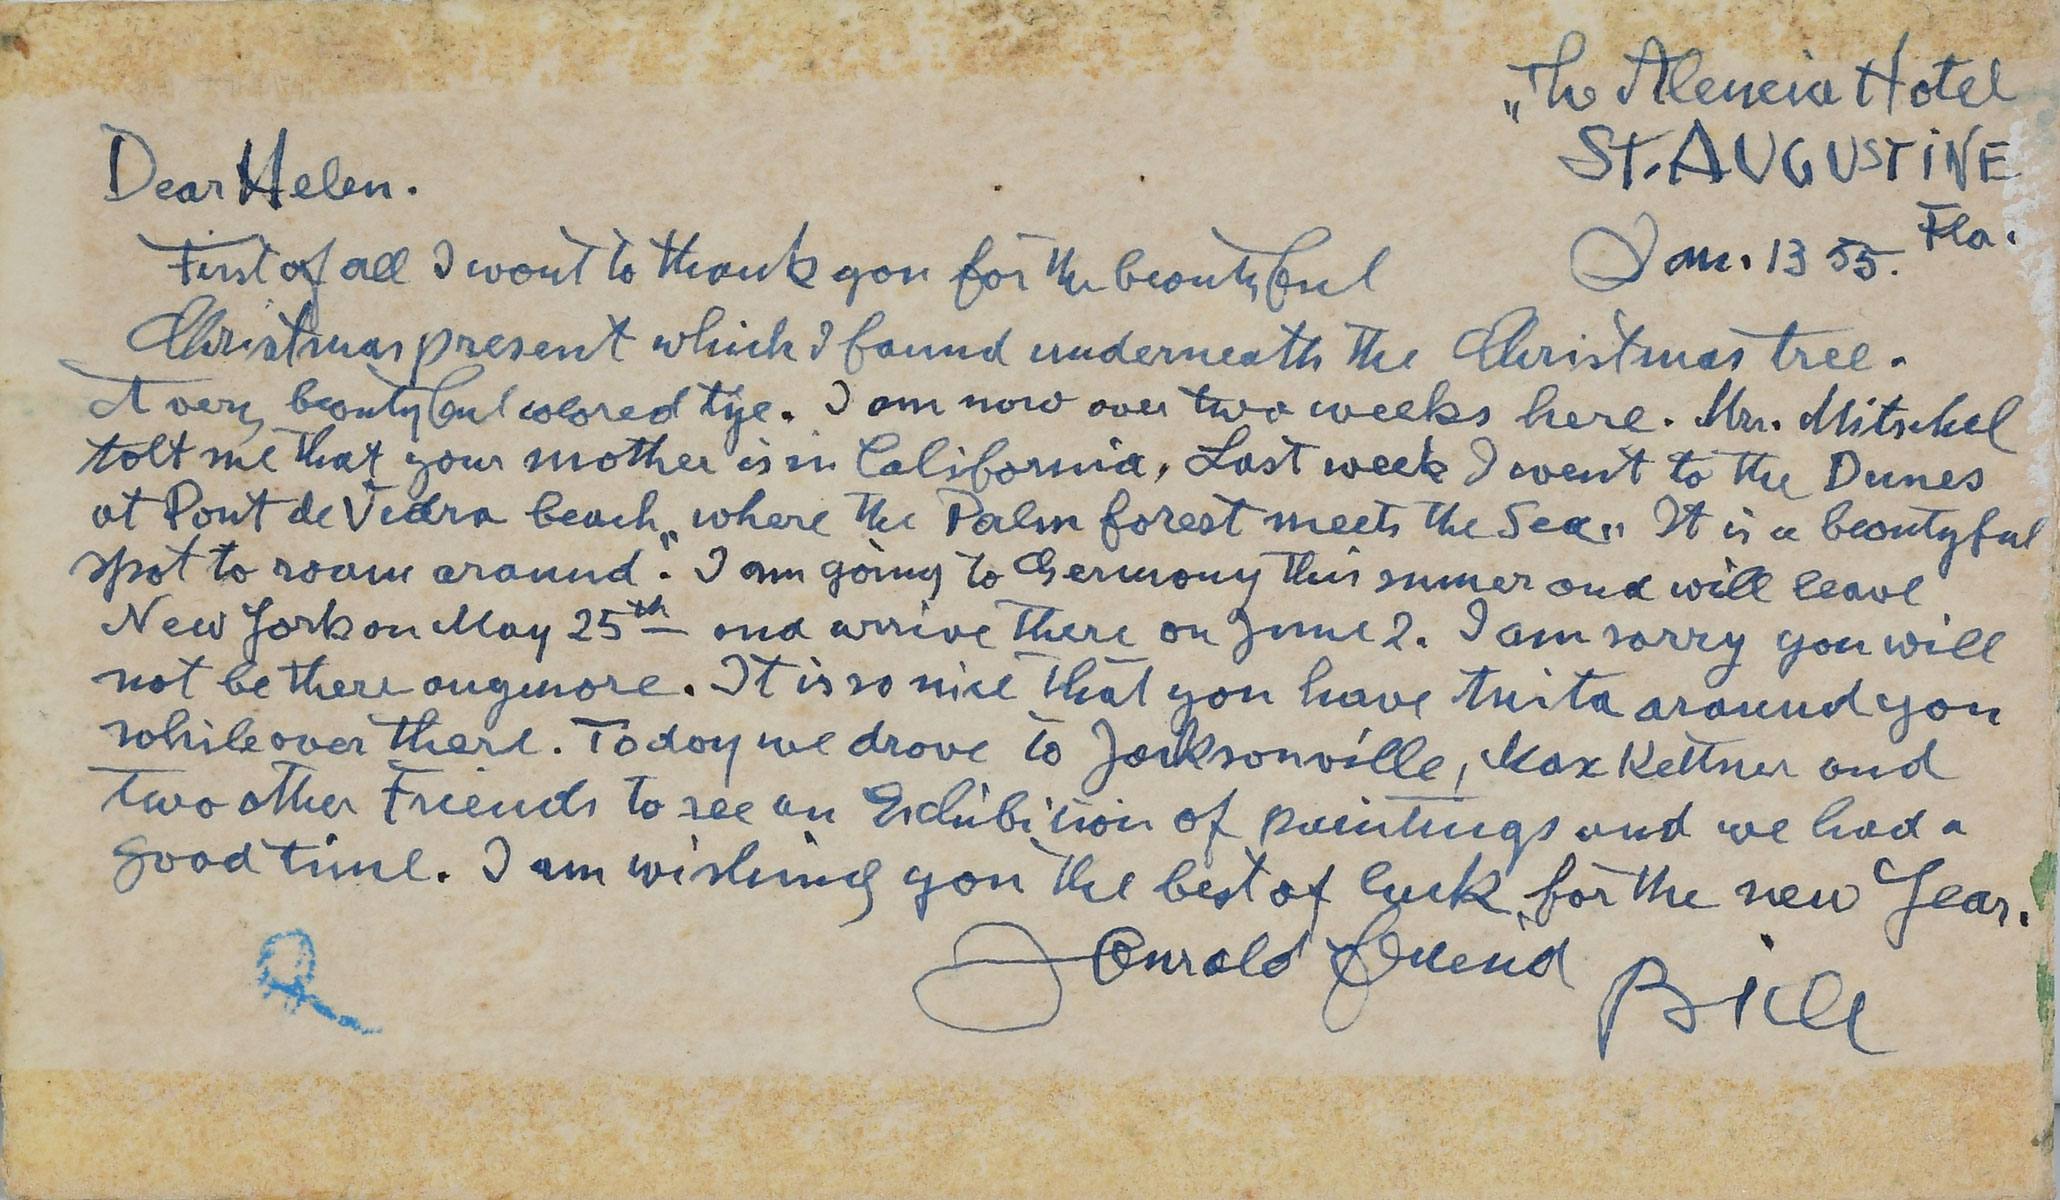 „The Alencia Hotel
St. AUGUSTINE
Fla.
Jan. 13 55.
Dear Helen.
First of all I want to thank you for the beautyful
Christmas present which I found underneath the Christmas tree.
A very beautyful colored tye. I am now over two weeks here. Mrs. Mitschel
tolt me that your mother is in California. Last week I went to the Dunes
at Pont de Vedra beach „where the Palm forest meets the Sea“ It is a beautyful
spot to roam around. I am going to Germany this summer and will leave
New York on May 25th and arrive there on June 2. I am sorry you will
not be there anymore. It is so nice that you have around you
while over there. Today we drove to Jacksonville, Max Kettner and
two other Friends to see an Exhibition of paintings and we had a
good time. I am wishing you the best of luck for the new Year.
Your old Friend Bill